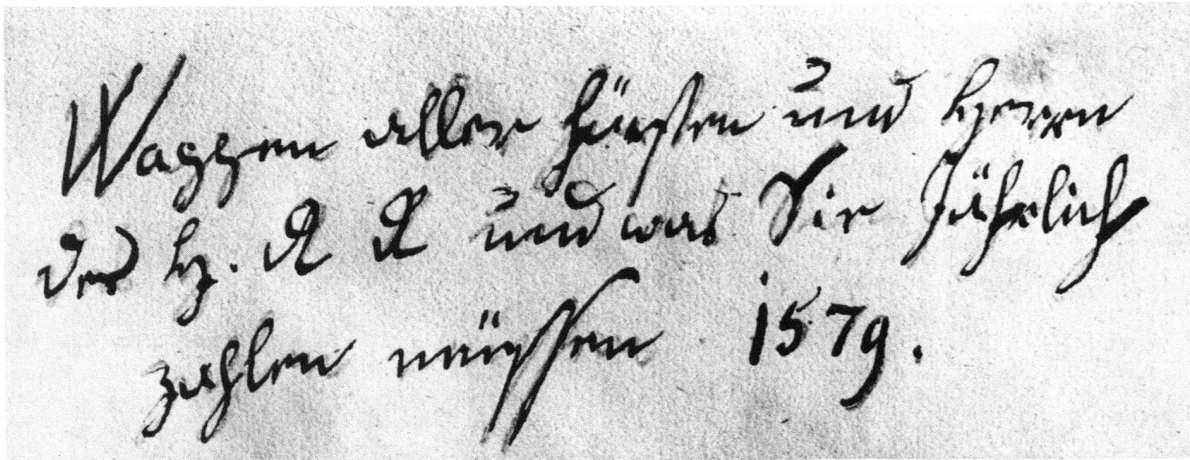 Wappen aller Fürsten und Herrn
des H. R R und was Sie Jährlich
zahlen müssen 1579.